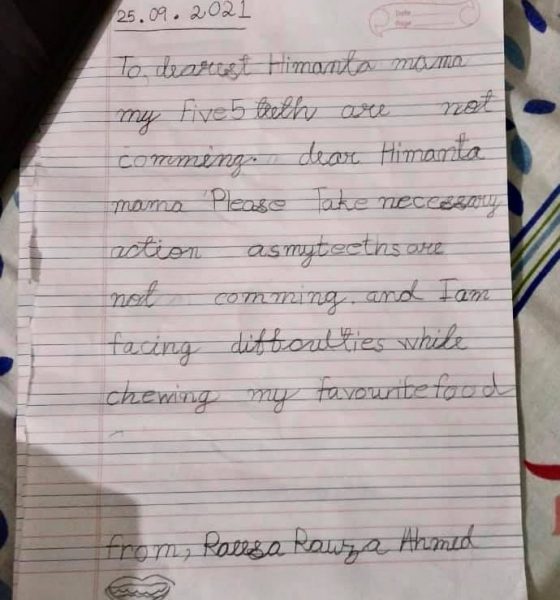 25.09.2021
Date
Page
To, dearest Himanta mama
my five5 teeth are not
comming. dear Himanta
mama Please Take necessary
action asmyteethsare
not comming. and I am
facing difficulties while
chewing my favouritefood
from, Raeesa Rawza Ahmed